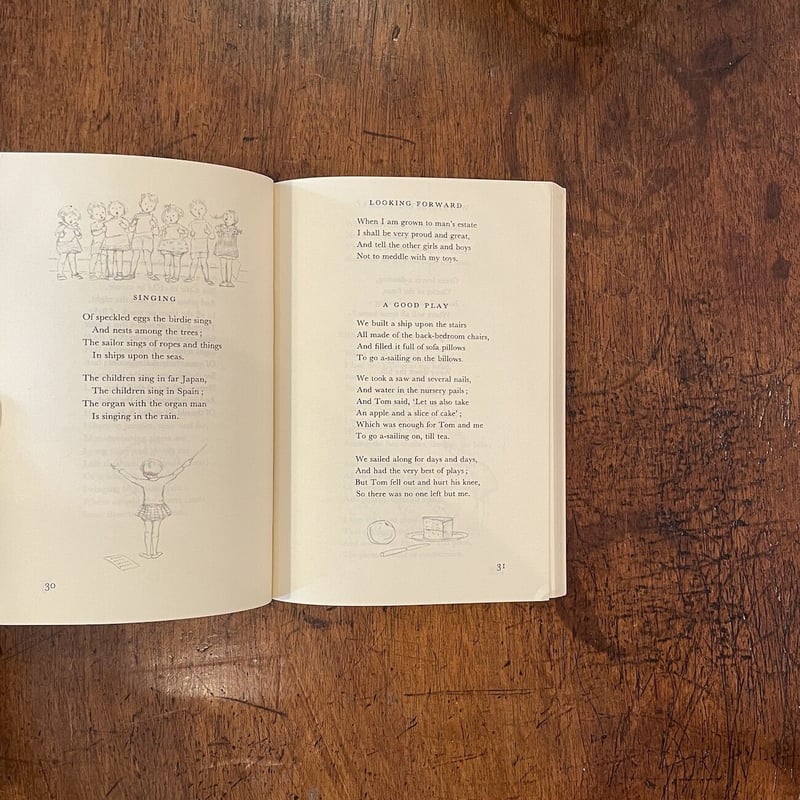 SINGING
Of speckled eggs the birdie sings
And nests among the trees;
The sailor sings of ropes and things
In ships upon the seas.
The children sing in far Japan,
The children sing in Spain;
The organ with the organ man
Is singing in the rain.
30
LOOKING FORWARD
When I am grown to man's estate
I shall be very proud and great,
And tell the other girls and boys
Not to meddle with my toys.
A GOOD PLAY
We built a ship upon the stairs
All made of the back-bedroom chairs,
And filled it full of sofa pillows
To go a-sailing on the billows.
We took a saw and several nails,
And water in the nursery pails;
And Tom said, 'Let us also take
An apple and a slice of cake';
Which was enough for Tom and me
To go a-sailing on, till tea.
We sailed along for days and days,
And had the very best of plays;
But Tom fell out and hurt his knee,
So there was no one left but me.
31